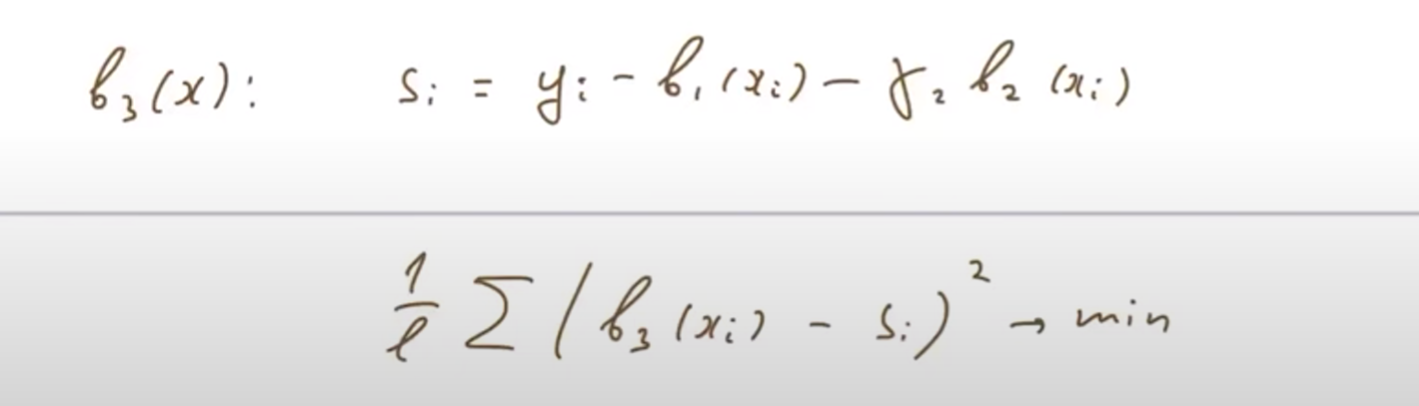 b₃(x): sᵢ = yᵢ - b₁(xᵢ) - γ₂ b₂(xᵢ)
1/ℓ Σ(b₃(xᵢ) - sᵢ)² → min